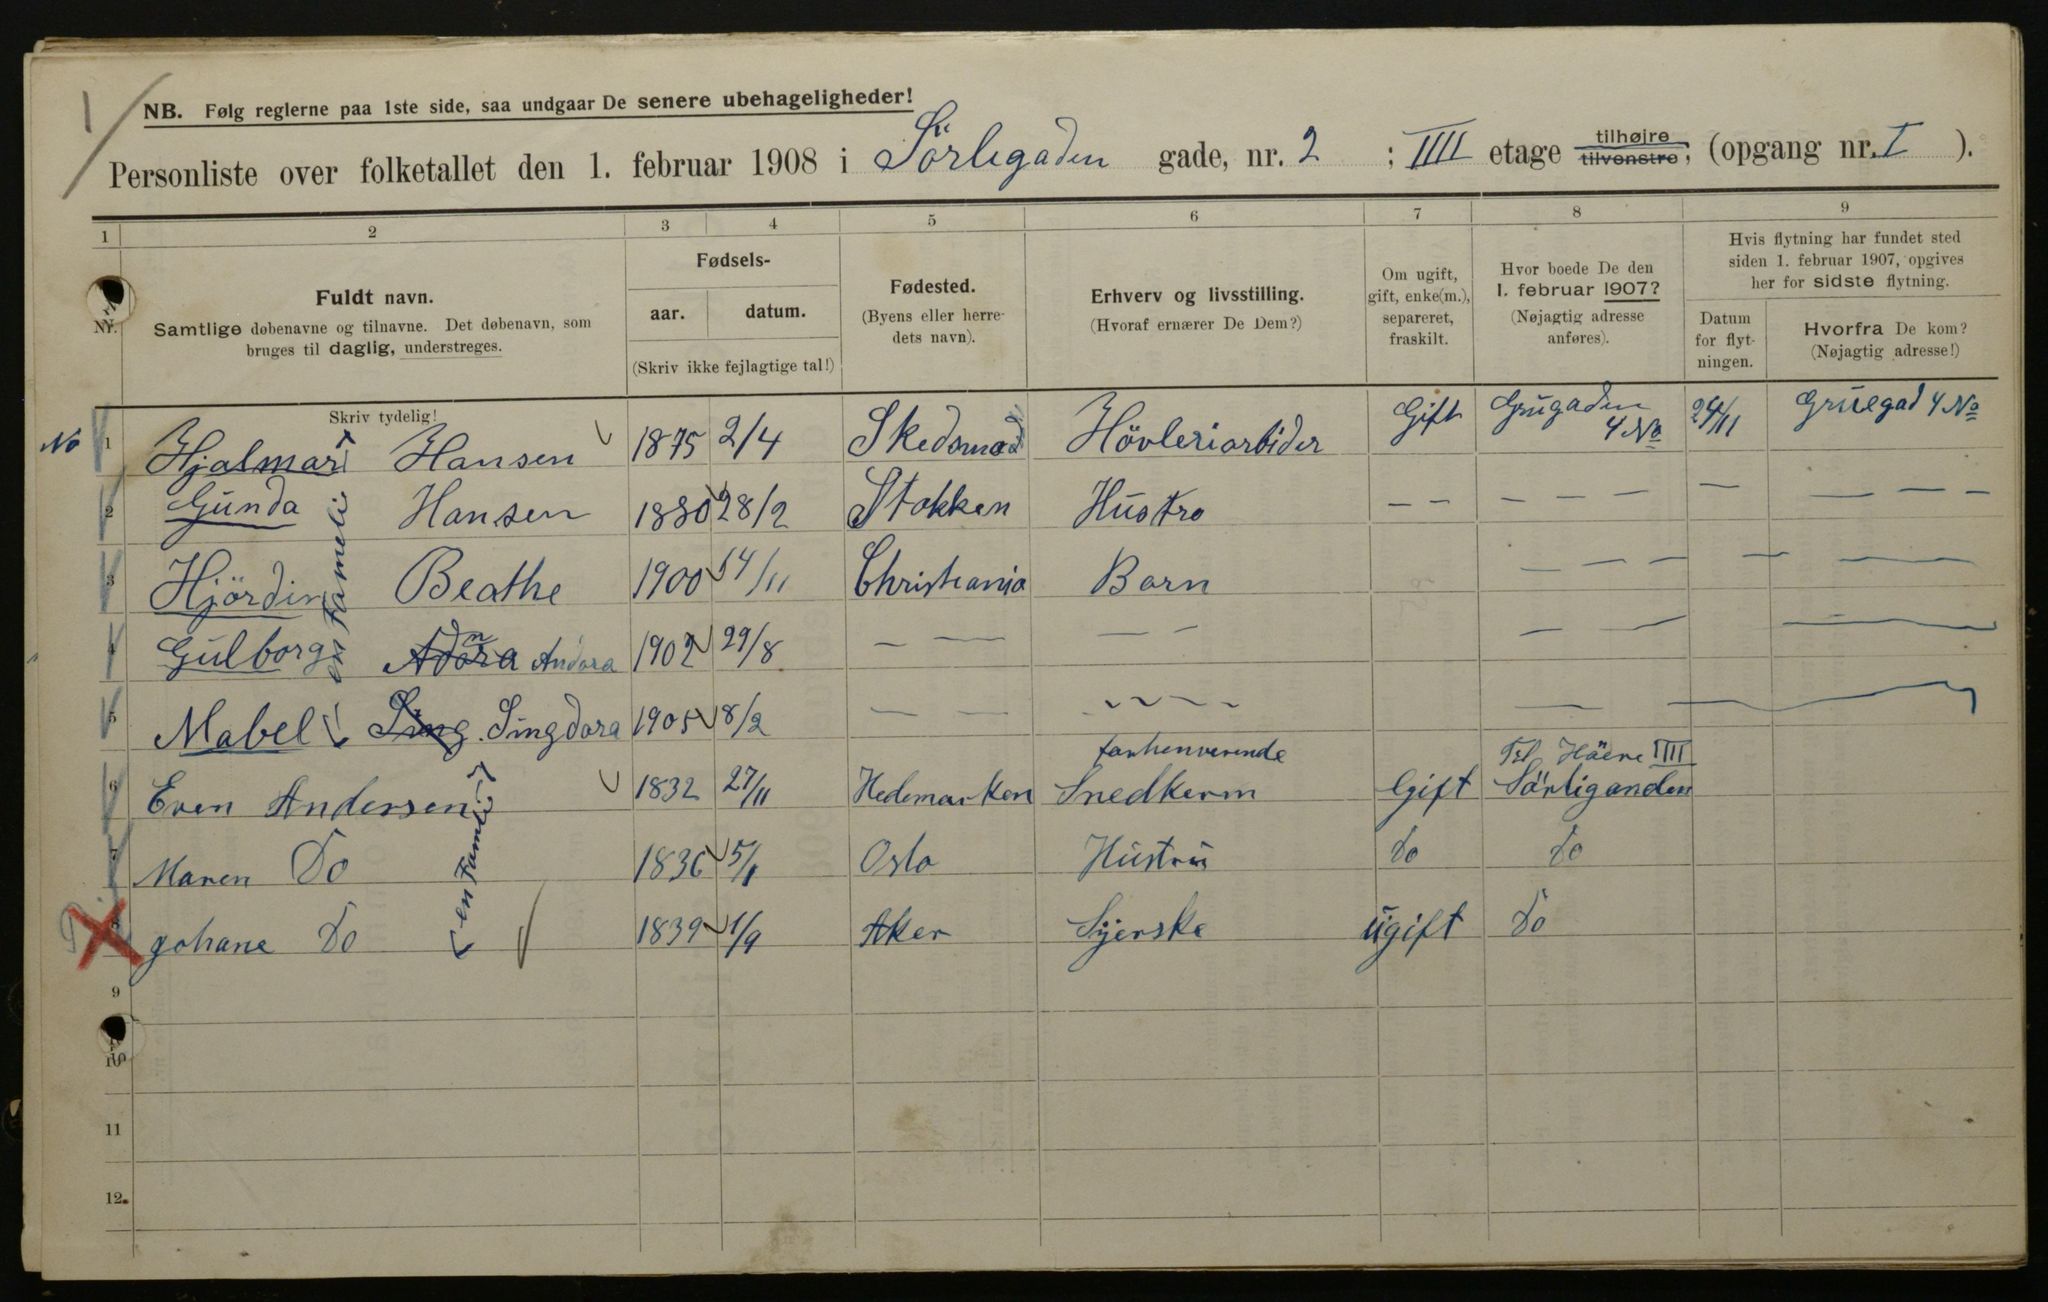 1/
NB. Følg reglerne paa 1ste side, saa undgaar De senere ubehageligheder!
Personliste over folketallet den 1. februar 1908 i Sörligaden gade, nr. 2 ; IIII etage tilhøire tilvenstre; (opgang nr. I ).
1 2 3 4 5 6 7 8 9
Nr.
Fuldt navn.
Samtlige døbenavne og tilnavne. Det døbenavn, som
bruges til daglig, understreges.
Skriv tydelig!
Fødsels-
aar. datum.
(Skriv ikke fejlagtige tal!)
Fødested.
(Byens eller herre-
dets navn).
Erhverv og livsstilling.
(Hvoraf ernærer De Dem?)
Om ugift,
gift, enke(m.),
separeret,
fraskilt.
Hvor boede De den
1. februar 1907?
(Nøjagtig adresse
anføres).
Hvis flytning har fundet sted
siden 1. februar 1907, opgives
her for sidste flytning.
Datum
for flyt-
ningen.
Hvorfra De kom?
(Nøjagtig adresse!)
No 1 Hjalmar Hansen 1875 2/4 Skedsmo Hövleriarbider Gift Grügaden 4 No 24/11 Gruegad 4 No
2 Gunda Hansen 1880 28/2 Stokken Hustro — — — — — — — — —
3 Hjördis Beathe 1900 14/11 Christiania Barn — — — — — —
4 Gulborg Adora Andora 1902 29/8 — — — — — — —
5 Mabel Sing. Singdora 1905 8/2 — — ~ ~ ~ ~ — —
en Fameli
6 Even Andersen 1832 27/11 Hedemarken forhenverende Snedkerm Gift Til Häere IIII Sörliganden
7 Maren Do 1836 5/1 Oslo Hustru Do Do
8 Johane Do 1839 1/9 Aker Syerske ugift Do
en Famli
9
10
11
12.